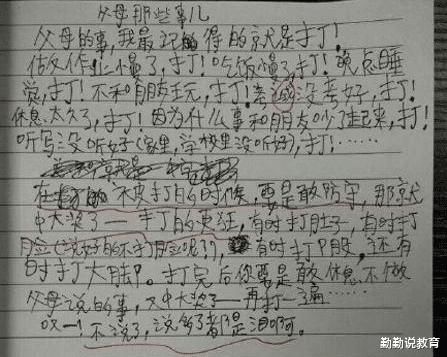 父母那些事儿
父母的事,我最记的得的就是打!
做作业慢了,打!吃饭慢了,打!晚点睡
觉,打!不和朋友玩,打!考试没考好,打!
休息太久了,打!因为什么事和朋友吵了起来,打!
听写没听好(家里,学校里没听好),打!……
在 不失打的时候,要是敢防守,那就
中大奖了——打的更狂,有时打肚子,有时打
脸(说好的不打脸呢?!),有时打P股,还有
时打大腿。打完后你要是敢休息不做
父母说的事,又中大奖了——再打一遍……
哎——!不说了,说多了都是泪啊。
勤勤说教育